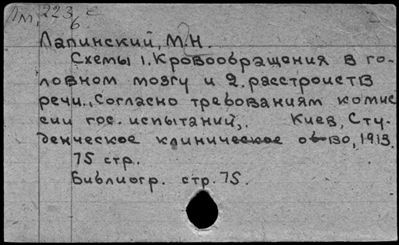 Лм. 223/6 с
Лапинский, М.Н.
Схемы 1. Кровообращения в го-
ловном мозгу и 2. расстройств
речи., Согласно требованиям комис
сии гос. испытаний,. Киев, Сту-
денческое клиническое о-во, 1913.
75 стр.
Библиогр. стр. 75.